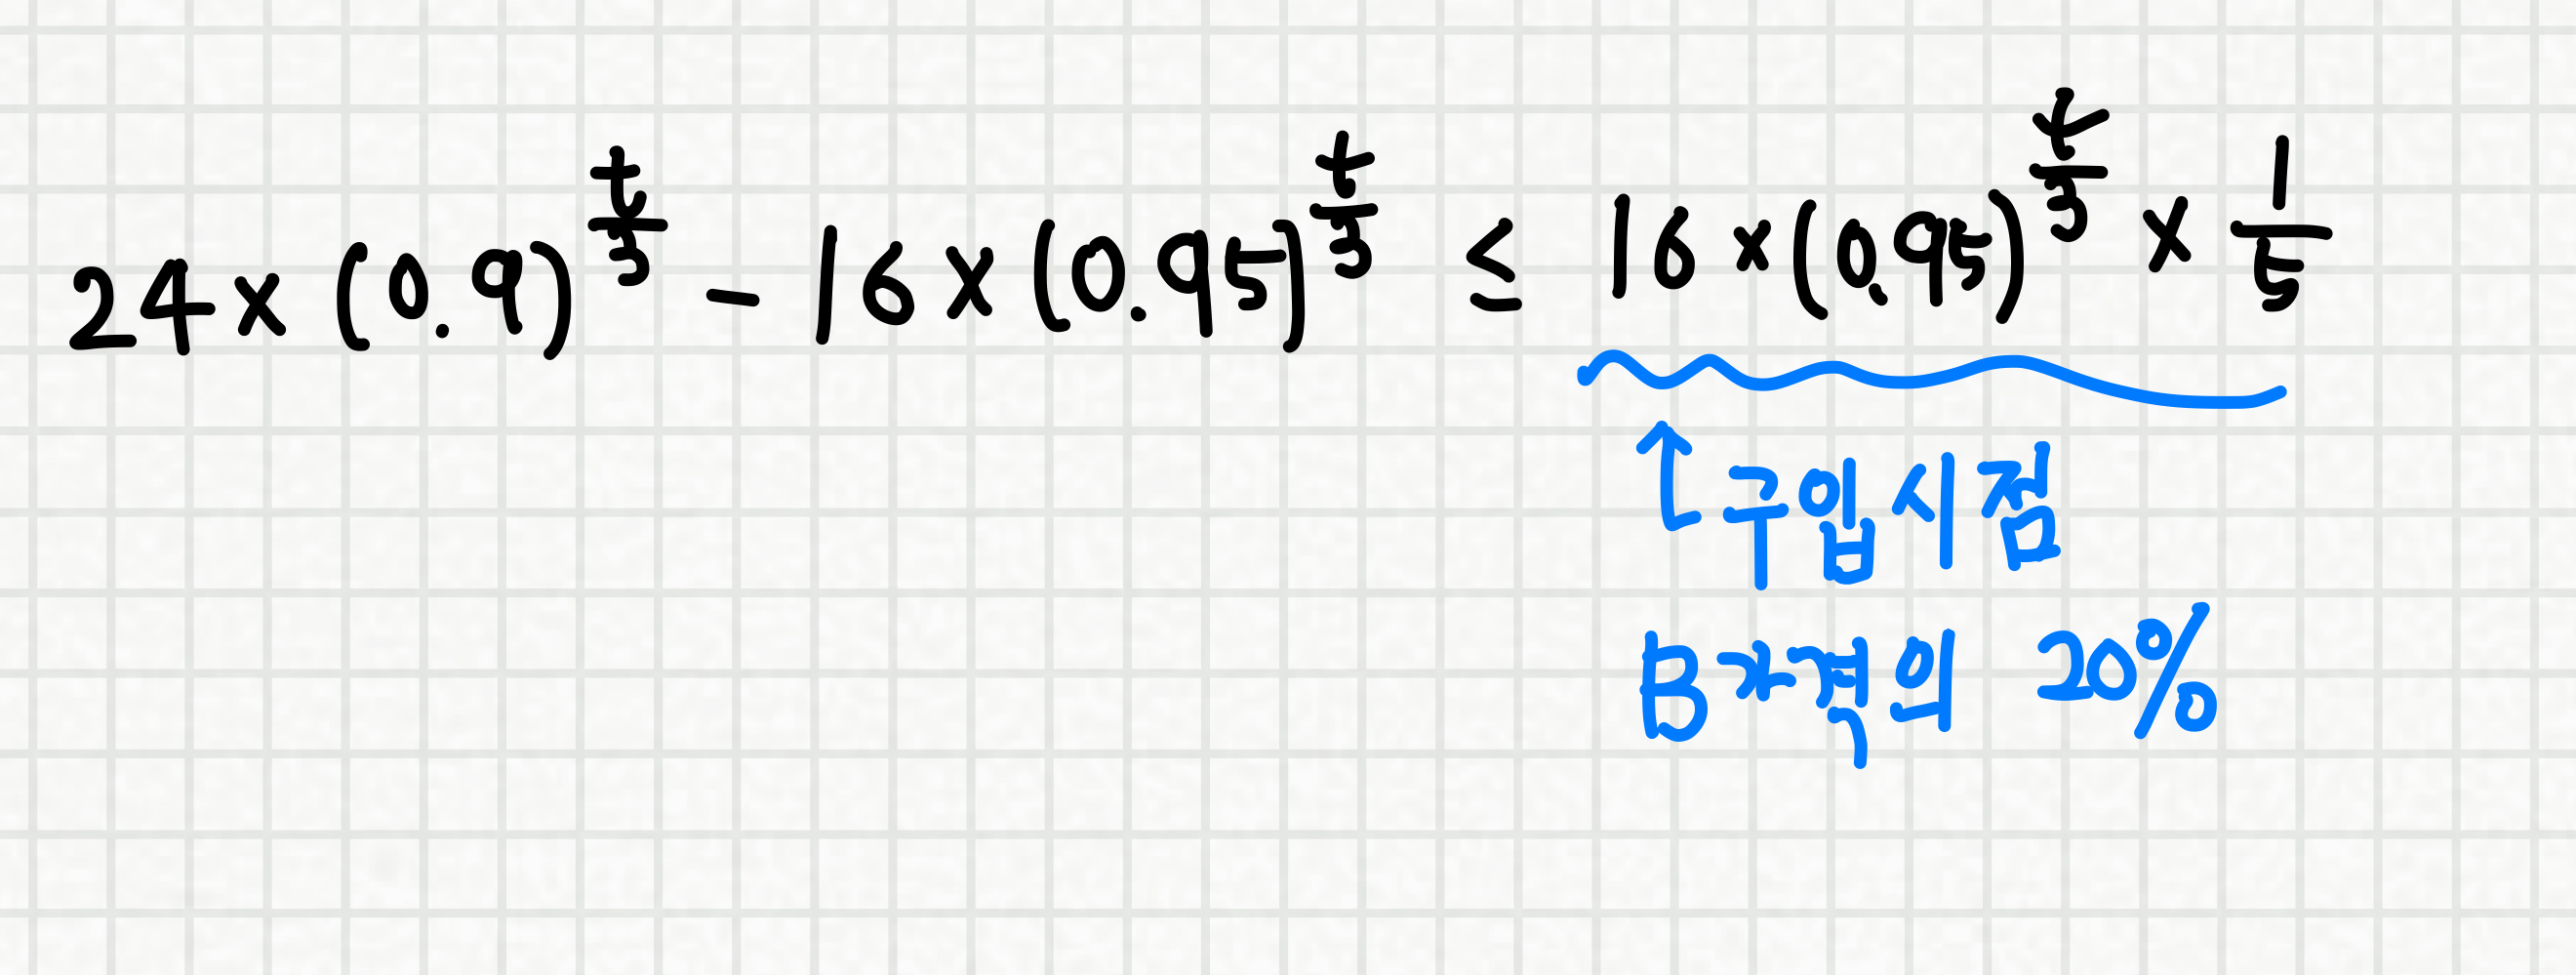 24 × (0.9)^(t/3) - 16 × (0.95)^(t/3) ≤ 16 × (0.95)^(t/3) × 1/5
구입시점
B가격의 20%